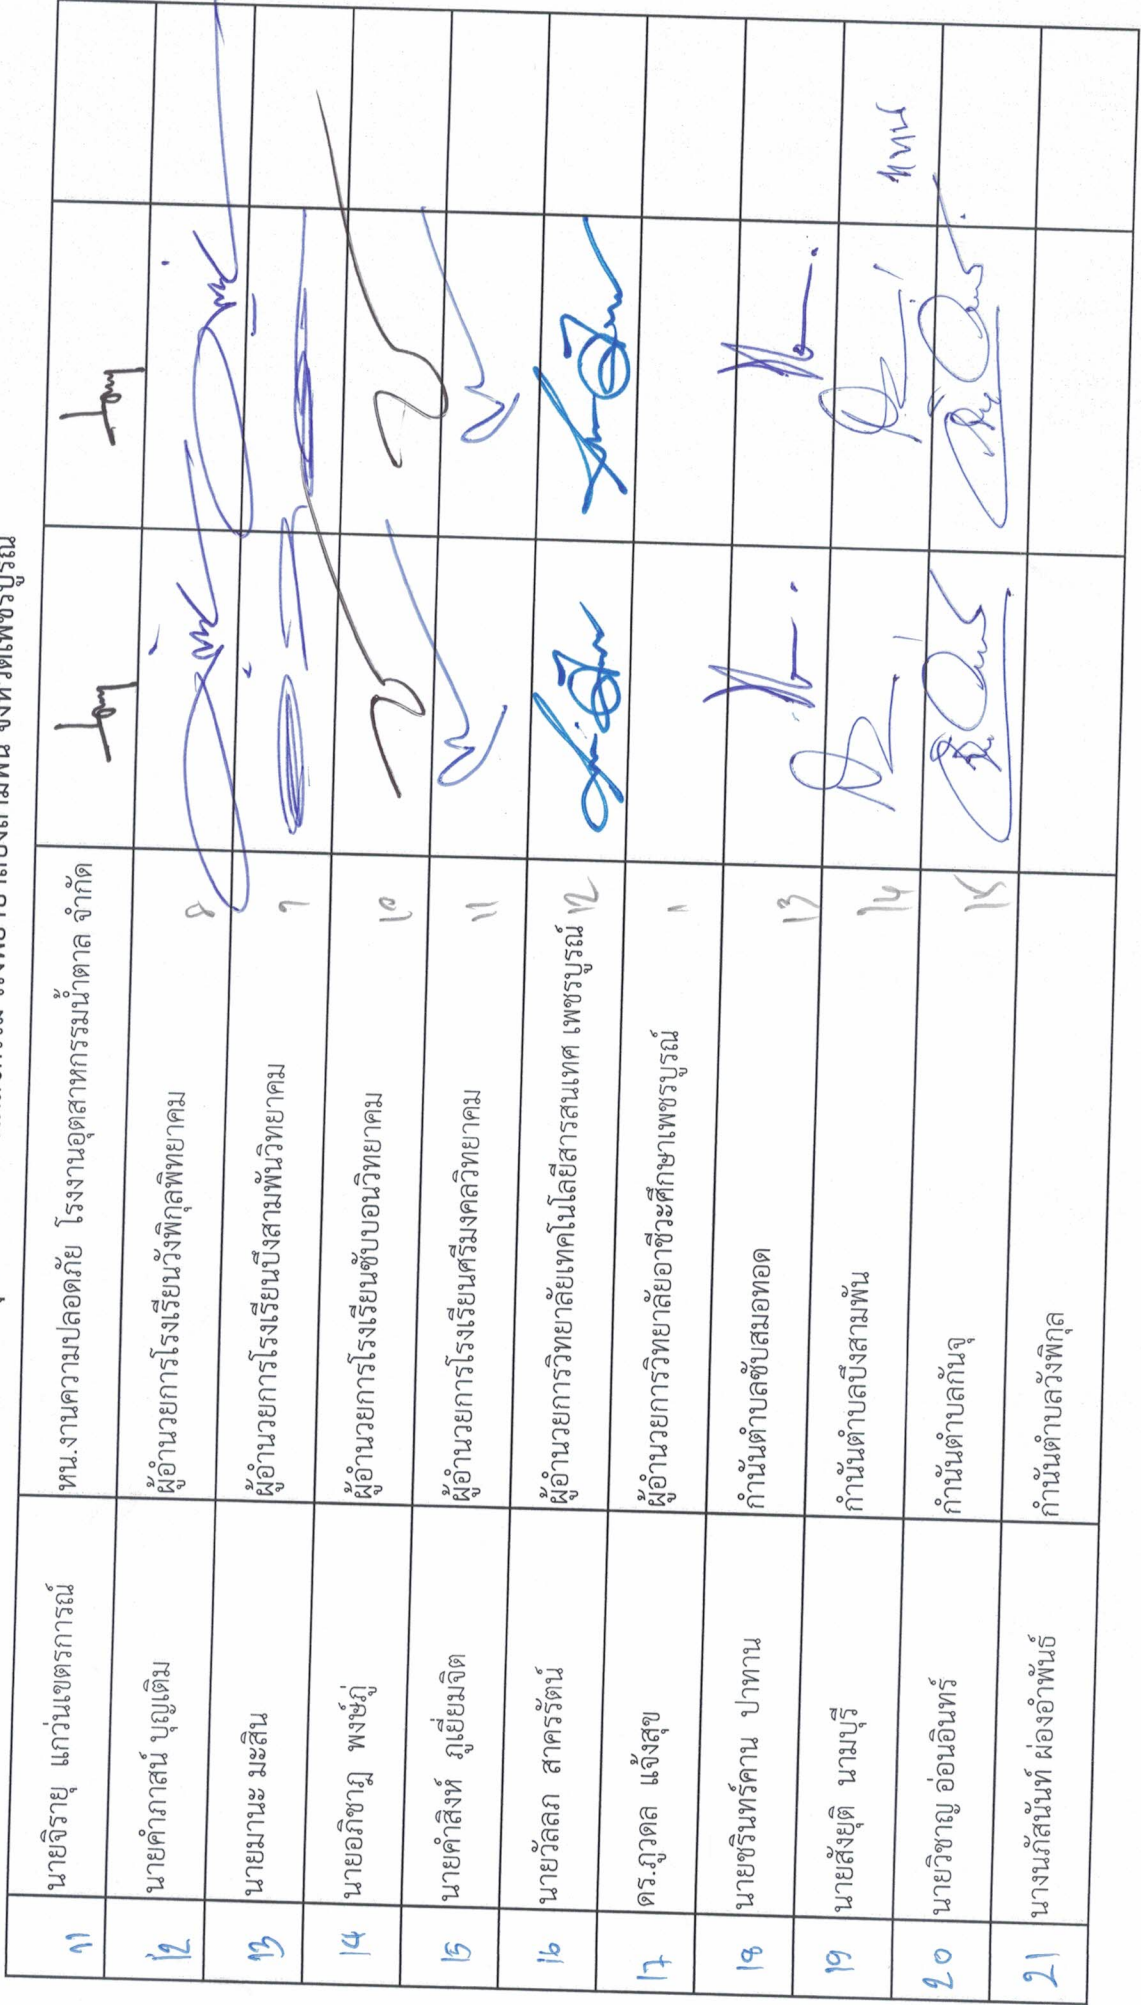 บึงสามพัน จังหวัดเพชรบูรณ์
11 นายจิรายุ แก่วนเขตรการณ์ หน.งานความปลอดภัย โรงงานอุตสาหกรรมน้ำตาล จำกัด
12 นายคำภาสน์ บุญเติม ผู้อำนวยการโรงเรียนวังพิกุลพิทยาคม 8
13 นายมานะ มะสิน ผู้อำนวยการโรงเรียนบึงสามพันวิทยาคม 9
14 นายอภิชาฎ พงษ์ภู่ ผู้อำนวยการโรงเรียนซับบอนวิทยาคม 10
15 นายคำสิงห์ ภูเยี่ยมจิต ผู้อำนวยการโรงเรียนศรีมงคลวิทยาคม 11
16 นายวัลลภ สาครรัตน์ ผู้อำนวยการวิทยาลัยเทคโนโลยีสารสนเทศ เพชรบูรณ์ 12
17 ดร.ภูวดล แจ้งสุข ผู้อำนวยการวิทยาลัยอาชีวะศึกษาเพชรบูรณ์
18 นายชรินทร์คาน ปาทาน กำนันตำบลซับสมอทอด 13
19 นายสังยุติ นามบุรี กำนันตำบลบึงสามพัน 14 แทน
20 นายวิชาญ อ่อนอินทร์ กำนันตำบลกันจุ 15
21 นางนภัสนันท์ ผ่องอำพันธ์ กำนันตำบลวังพิกุล